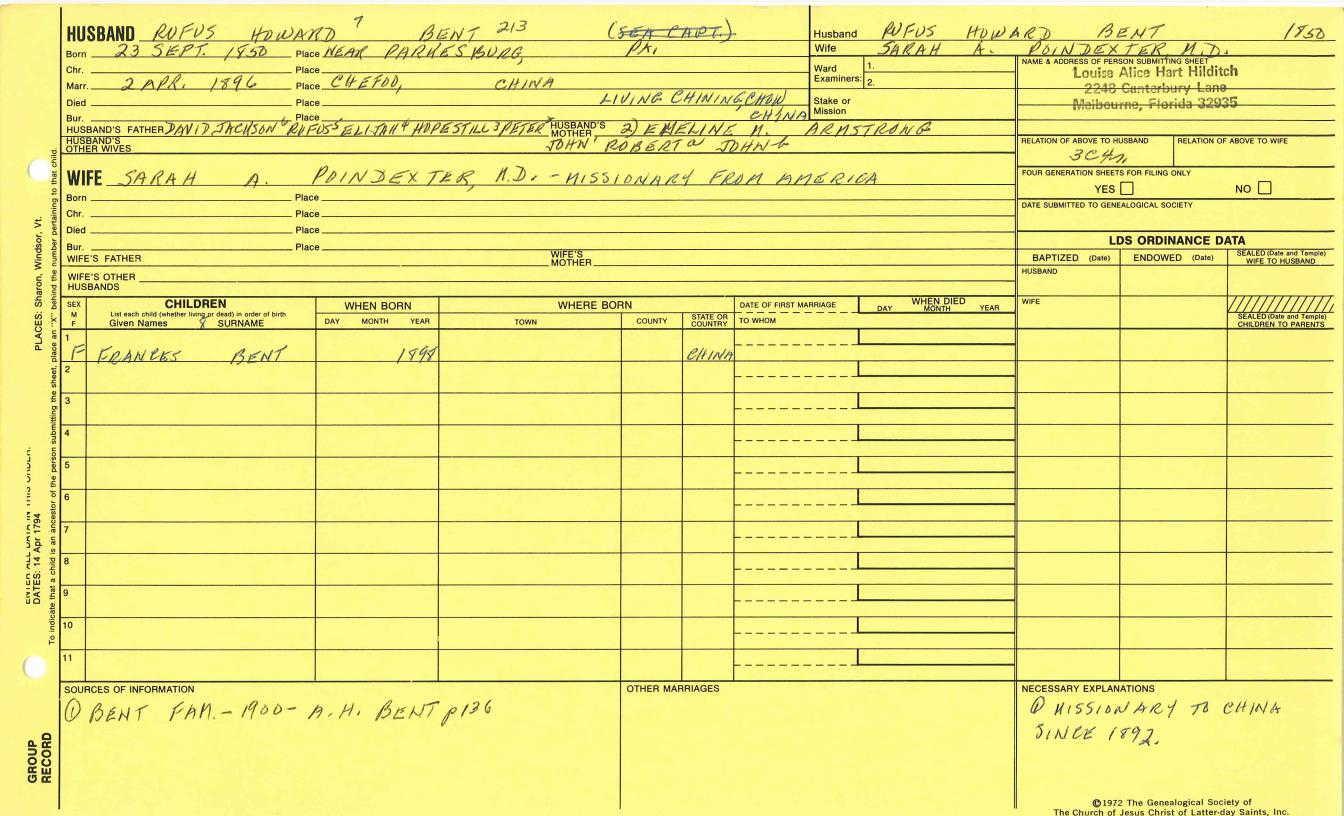 HUSBAND RUFUS HOWARD 7 BENT 213 (SEA CAPT.)
Born 23 SEPT. 1850 Place NEAR PARKESBURG, PA.
Chr. Place
Marr. 2 APR. 1896 Place CHEFOO, CHINA
Died Place LIVING CHINING, CHOW
Bur. Place CHINA
HUSBAND'S FATHER DAVID JACKSON 6 RUFUS 5 ELIJAH 4 HOPESTILL 3 PETER 2 HUSBAND'S MOTHER 2) EMELINE M. ARMSTRONG
HUSBAND'S OTHER WIVES JOHN 1 ROBERT a JOHN b
WIFE SARAH A. POINDEXTER, M.D. - MISSIONARY FROM AMERICA
Born Place
Chr. Place
Died Place
Bur. Place
WIFE'S FATHER WIFE'S MOTHER
WIFE'S OTHER HUSBANDS
Husband RUFUS HOWARD BENT 1850
Wife SARAH A. POINDEXTER M.D.
Ward Examiners: 1.
2.
Stake or Mission
NAME & ADDRESS OF PERSON SUBMITTING SHEET
Louise Alice Hart Hilditch
2248 Canterbury Lane
Melbourne, Florida 32935
RELATION OF ABOVE TO HUSBAND RELATION OF ABOVE TO WIFE
3C4r.
FOUR GENERATION SHEETS FOR FILING ONLY
YES NO
DATE SUBMITTED TO GENEALOGICAL SOCIETY
LDS ORDINANCE DATA
BAPTIZED (Date) ENDOWED (Date) SEALED (Date and Temple) WIFE TO HUSBAND
HUSBAND
WIFE
SEALED (Date and Temple) CHILDREN TO PARENTS
SEX M F
CHILDREN
List each child (whether living or dead) in order of birth
Given Names 8 SURNAME
WHEN BORN
DAY MONTH YEAR
WHERE BORN
TOWN COUNTY STATE OR COUNTRY
DATE OF FIRST MARRIAGE
TO WHOM
WHEN DIED
DAY MONTH YEAR
1
F FRANCES BENT 1898 CHINA
2
3
4
5
6
7
8
9
10
11
SOURCES OF INFORMATION
① BENT FAM. - 1900 - A. H. BENT p136
OTHER MARRIAGES
NECESSARY EXPLANATIONS
① MISSIONARY TO CHINA
SINCE 1892.
©1972 The Genealogical Society of
The Church of Jesus Christ of Latter-day Saints, Inc.
PLACES: Sharon, Windsor, Vt.
To indicate that a child is an ancestor of the person submitting the sheet, place an "X" behind the number pertaining to that child.
ENTER ALL DATA IN THIS ORDER:
DATES: 14 Apr 1794
GROUP RECORD